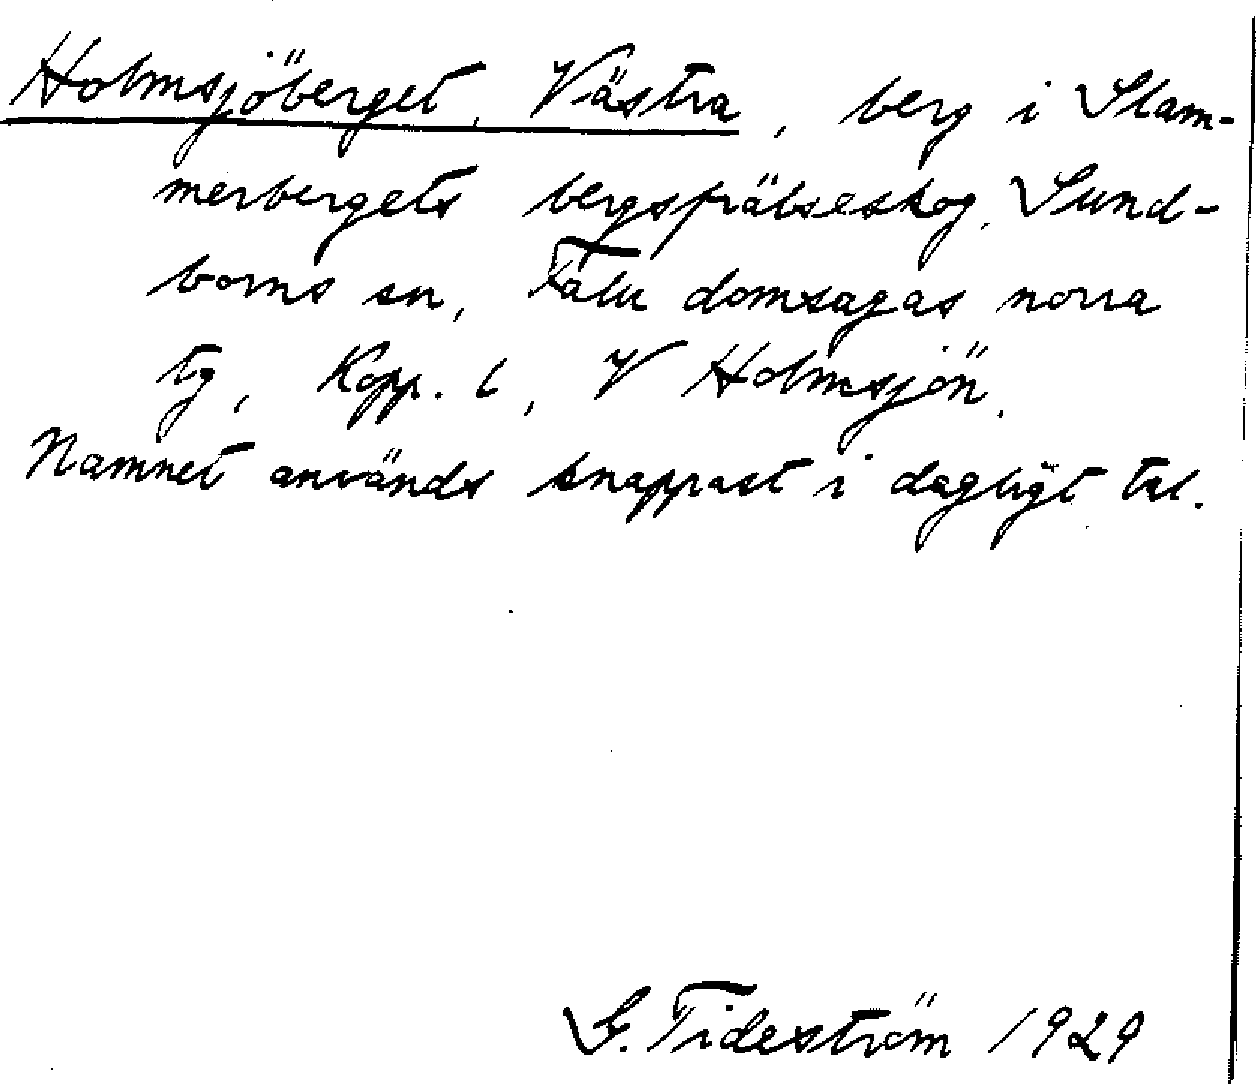 Holmsjöberget, Västra, berg i Slam-
merbergets bergsfrälseskog, Sund-
borns sn, Falu domsagas norra
tg, Kopp. l, V Holmsjön.
Namnet används knappast i dagligt tal.
G. Tideström 1929